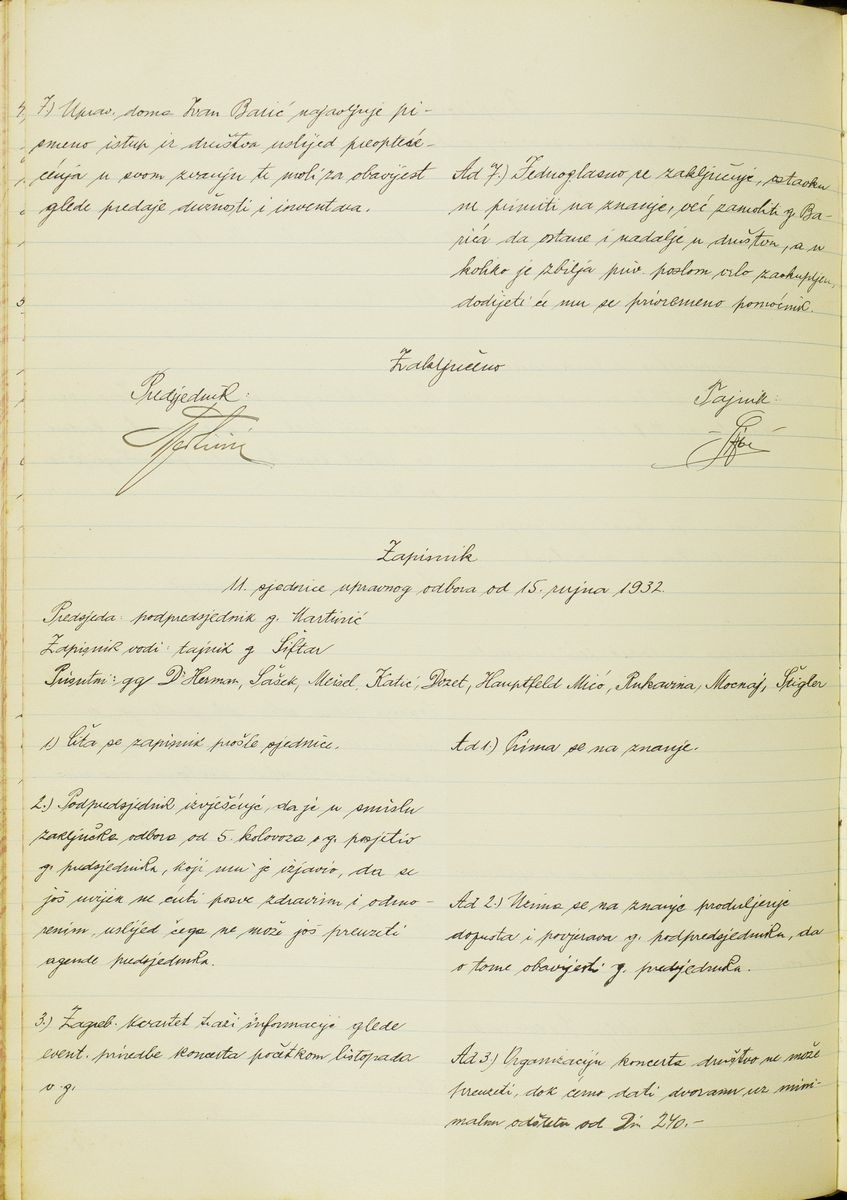 7.) Uprav. doma Ivan Barić najavljuje pi-
smeno istup iz društva uslijed preopteće-
ćenja u svom zvanju te moli za obavijest
glede predaje dužnosti i inventara.
Ad 7.) Jednoglasno se zaključuje, ostavku
ne primiti na znanje, već zamoliti g. Ba-
rića da ostane i nadalje u društvu, a u
koliko je zbilja priv. poslom vrlo zaokupljen,
dodijeti će mu se privremeno pomoćnik.
Zaključeno
Predsjednik:
Tajnik:
Martinić
Zapisnik
11. sjednice upravnog odbora od 15. rujna 1932.
Predsjeda: podpredsjednik g. Martinić
Zapisnik vodi: tajnik g Šiftar
Prisutni: gg Dr Herman, Šašek, Meisel, Katić, Dozet, Hauptfeld Mićo, Rukavina, Mocnaj, Štigler
1.) Čita se zapisnik prošle sjednice.
Ad 1.) Prima se na znanje.
2.) Podpredsjednik izvješćuje, da je u smislu
zaključka odbora od 5. kolovoza o g. posjetio
g. predsjednika, koji mu je izjavio, da se
još uvijek ne ćuti posve zdravim i odmo-
renim, uslijed čega ne može još preuzeti
agende predsjednika.
Ad 2.) Uzima se na znanje produljenje
dopusta i povjerava g. podpredsjedniku, da
o tome obavijesti g. predsjednika.
3.) Zagreb. kvartet traži informacije glede
event. priredbe koncerta početkom listopada
o. g.
Ad 3.) Organizaciju koncerta društvo ne može
preuzeti, dok ćemo dati dvoranu uz mini-
malnu odštetu od Din 240.-